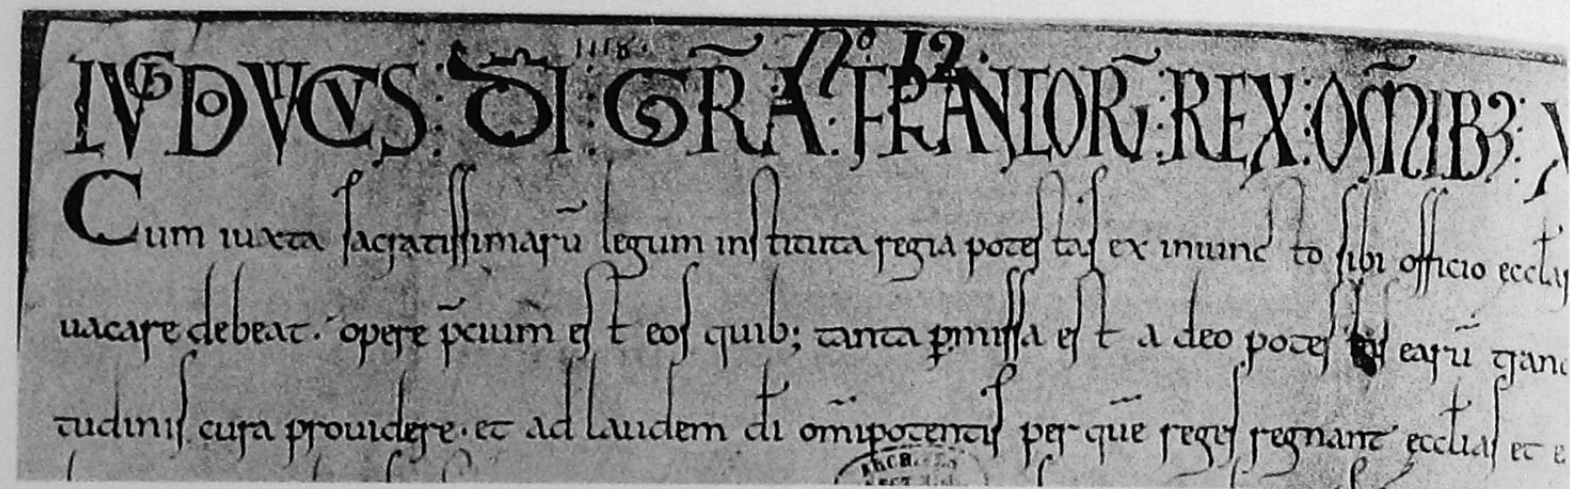 LVDOVVICVS : DI : GR̄A : FRANCOR̄ : REX : OM̄IBꝫ :
Cum iuxta sacratissimarū legum instituta regia potestas ex iniuncto sibi officio eccl̄as
uacare debeat. opere p̄cium̄ est eos quib; tanta ꝑmissa est a deo potestas earū
tudinis cura prouidere. et ad laudem dī om̄ipotentis per quē reges regnant eccl̄ias et
Nº 12.
1118.